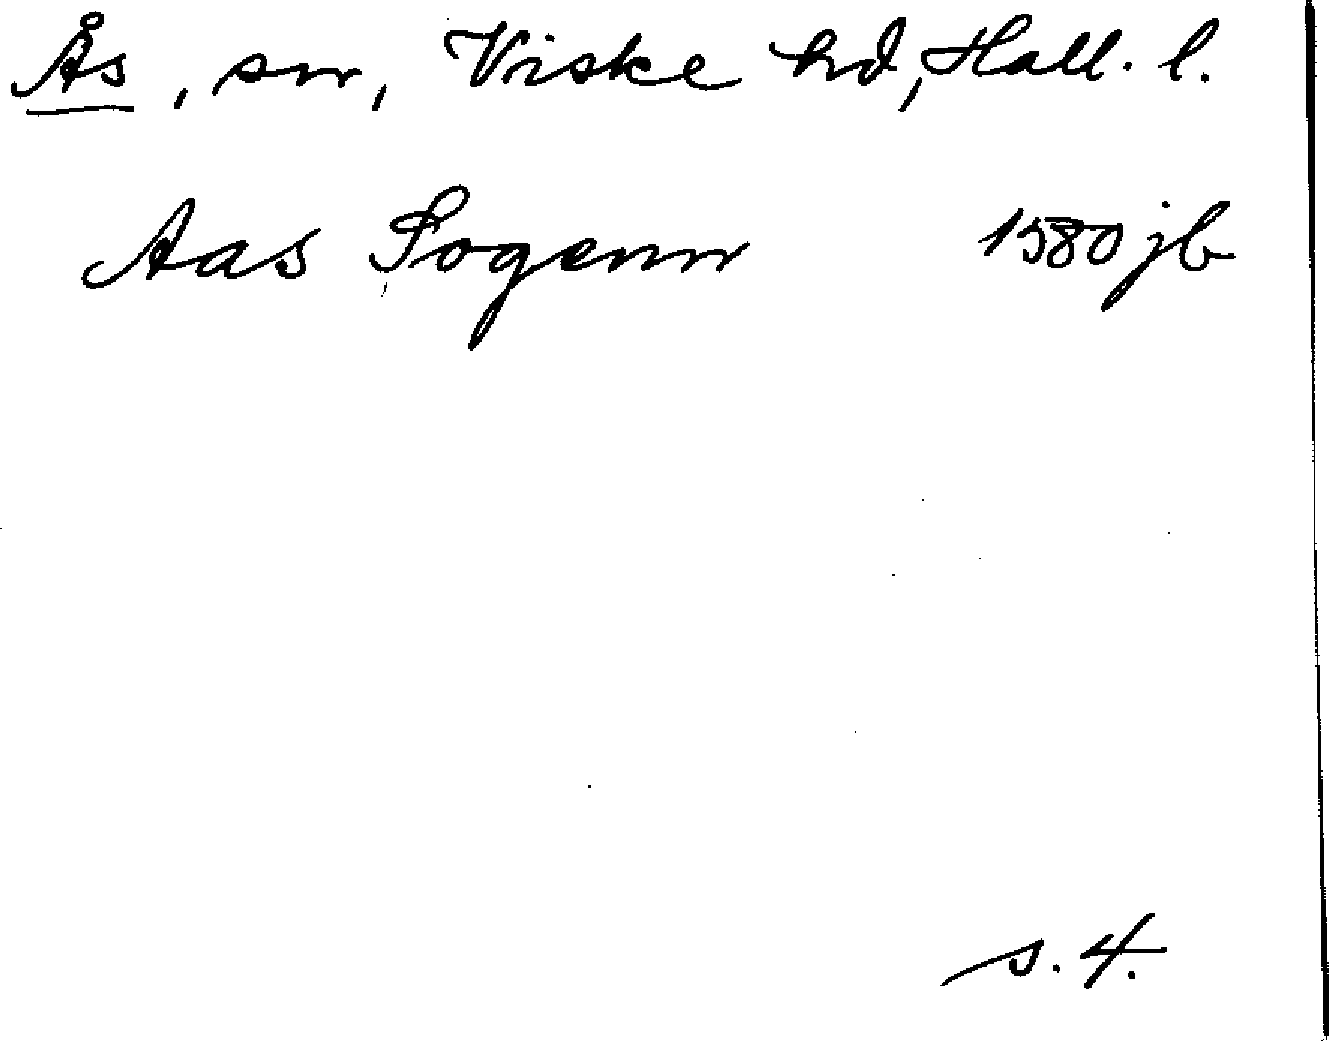 Ås, sn, Viske hd, Hall. l.
Aas Sogenn 1580 jb
s. 4.